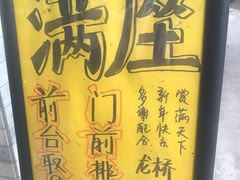 满座
门前排
前台取
赏满天下
新年快乐
多谢配合
龙桥